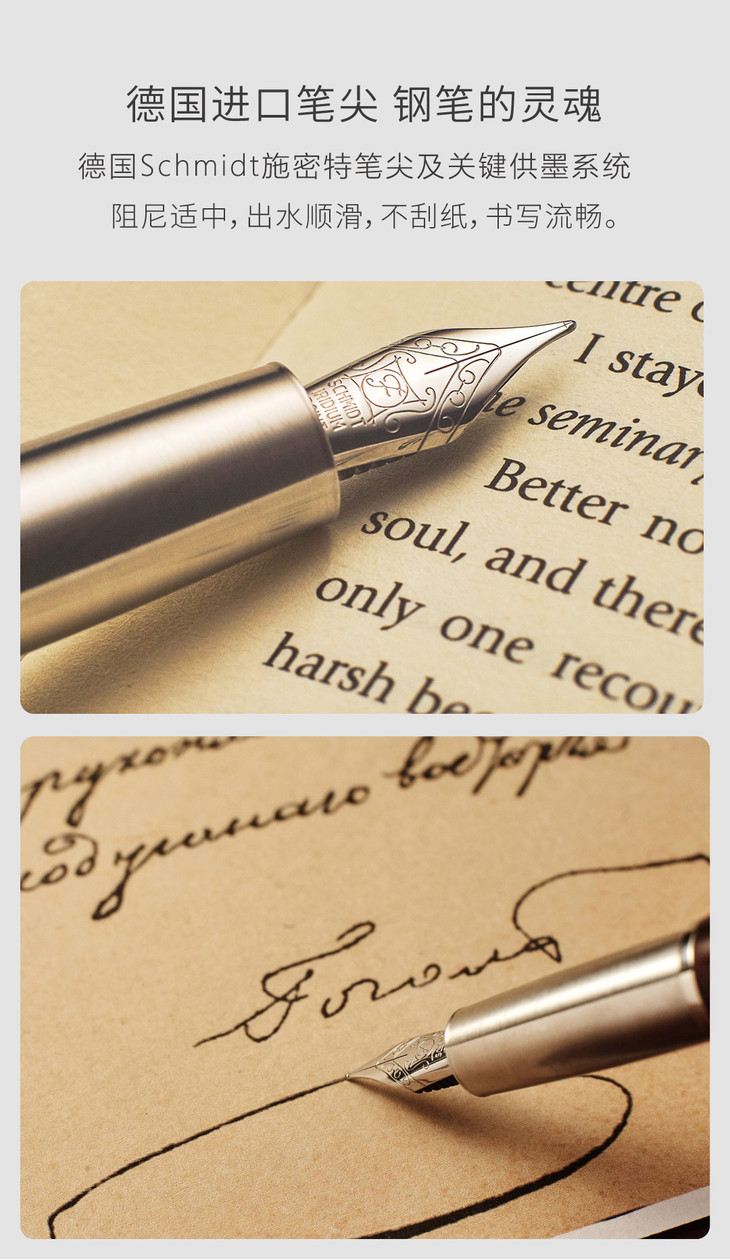 德国进口笔尖 钢笔的灵魂
德国Schmidt施密特笔尖及关键供墨系统
阻尼适中，出水顺滑，不刮纸，书写流畅。
centre
I stay
SCHMIDT
IRIDIUM
he seminar
Better no
soul, and there
only one recou
harsh be